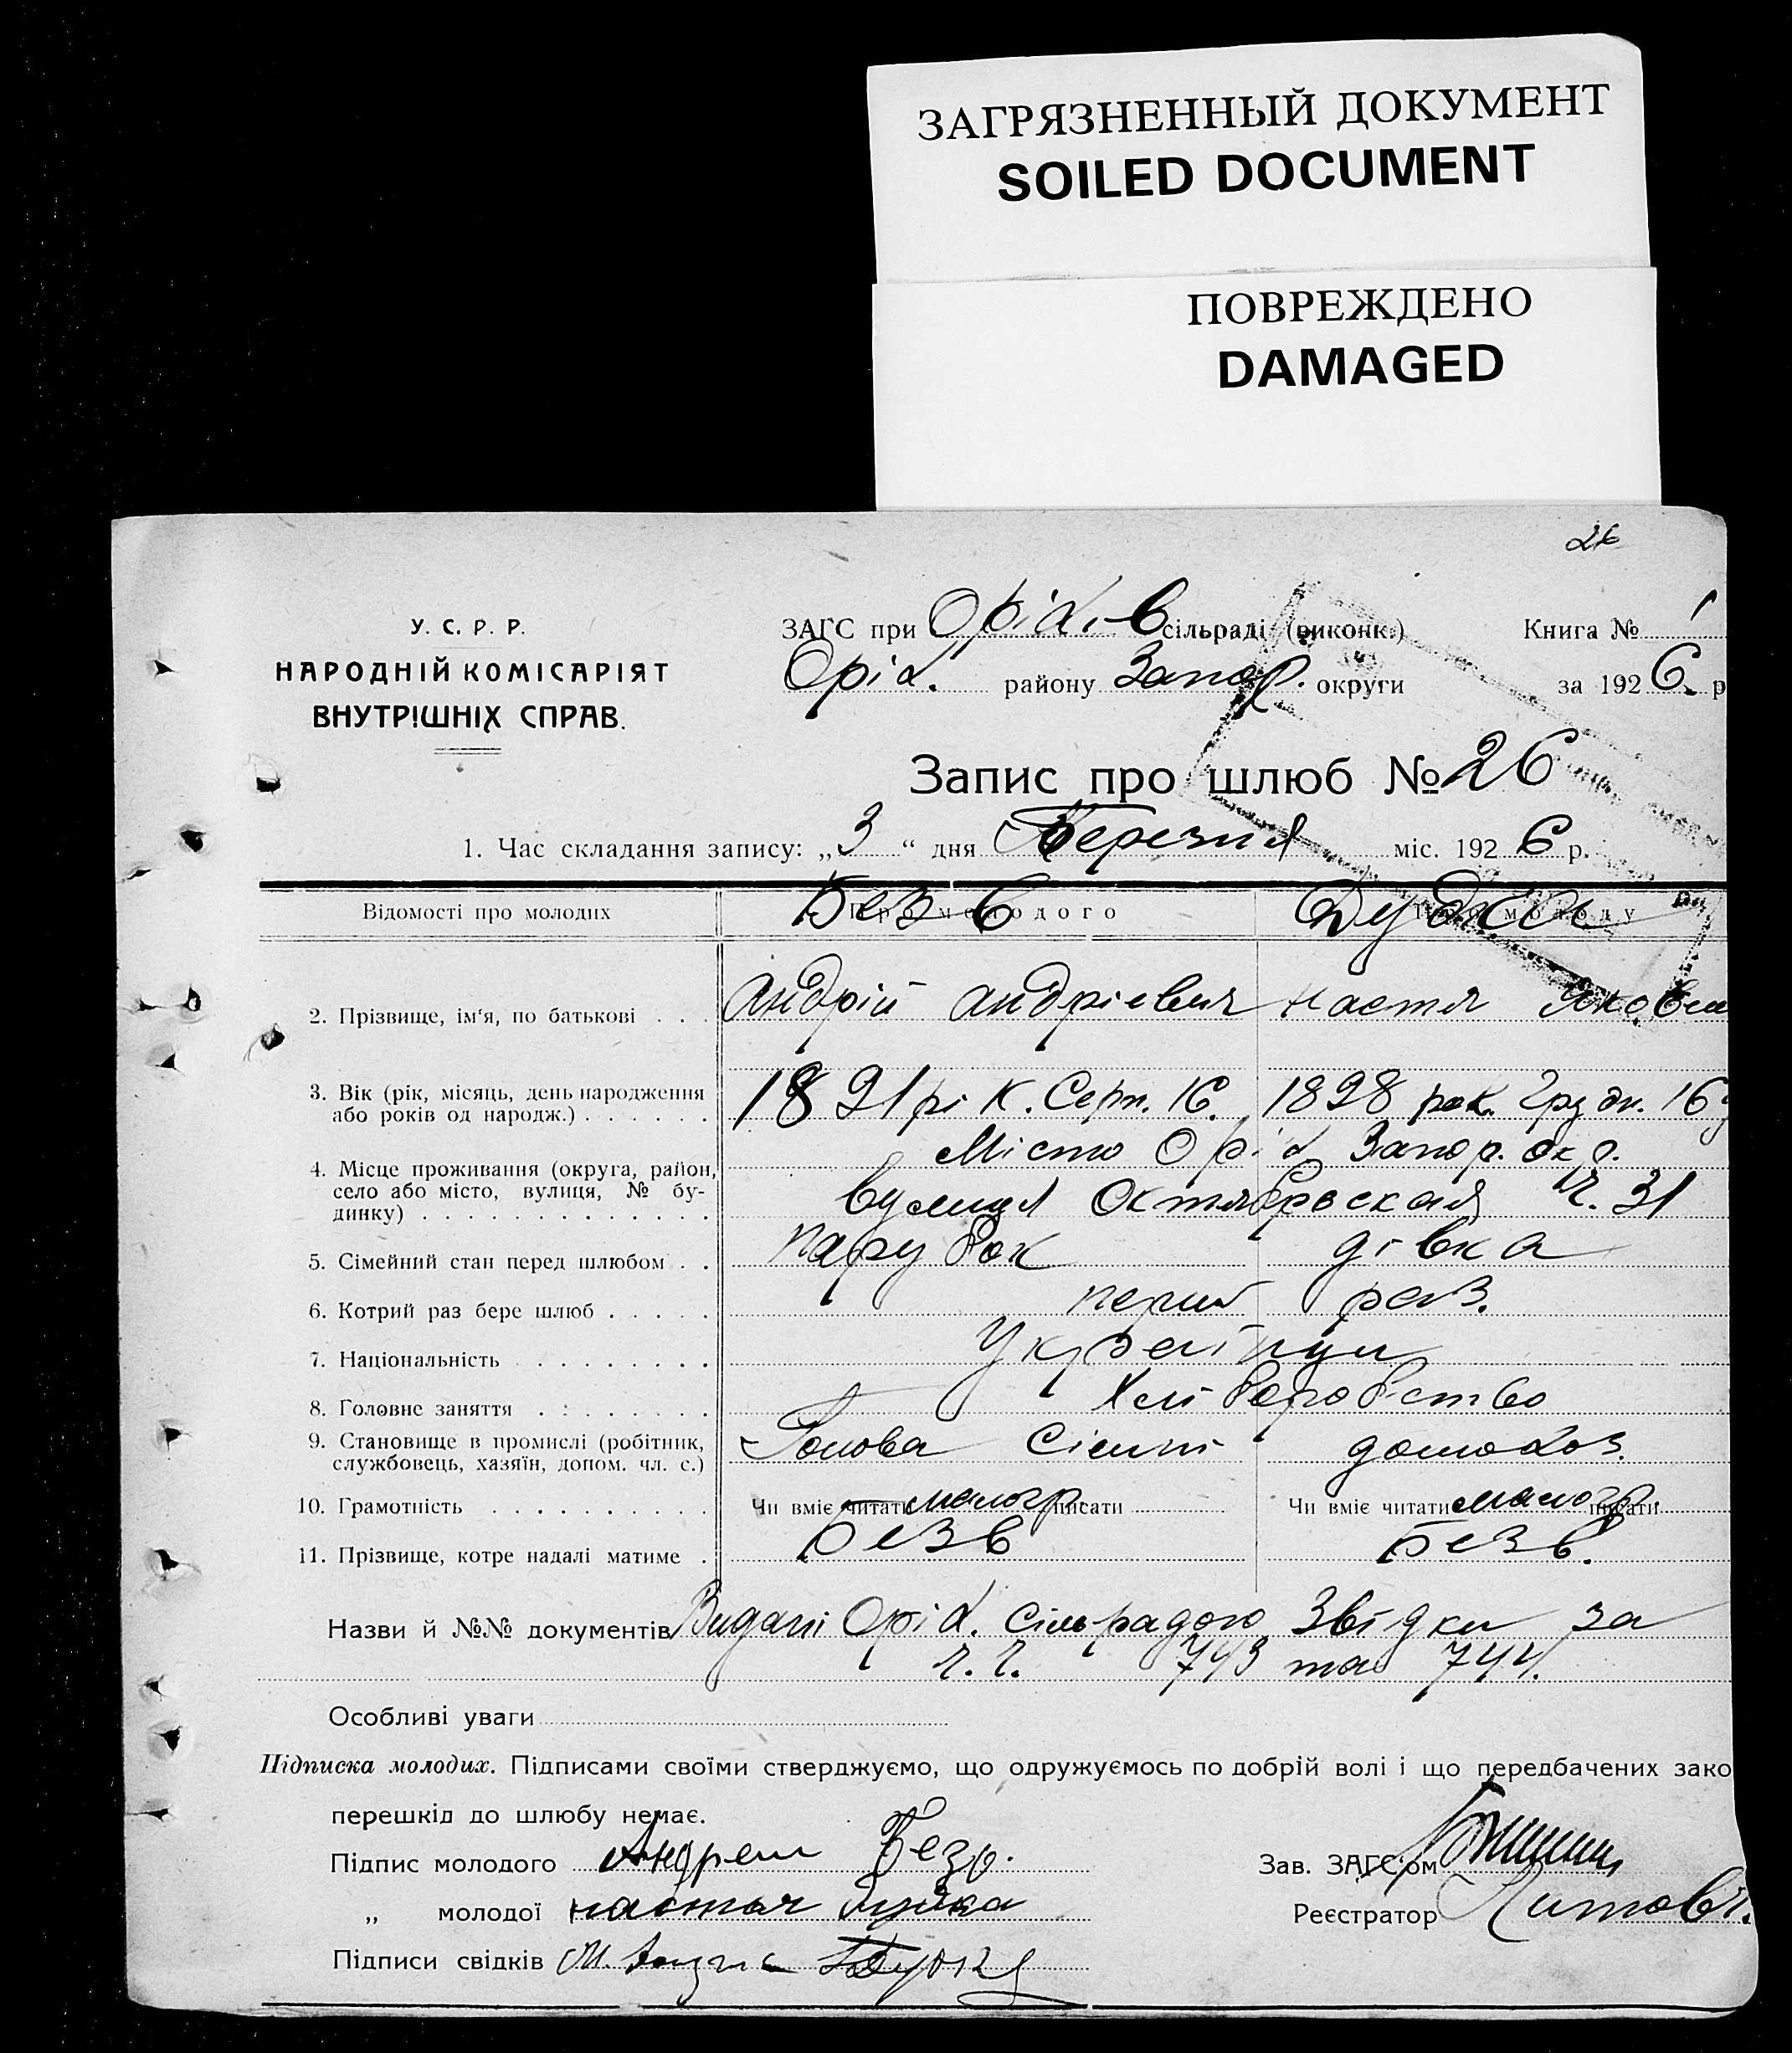 ЗАГРЯЗНЕННЫЙ ДОКУМЕНТ
SOILED DOCUMENT
ПОВРЕЖДЕНО
DAMAGED
26
У. С. Р. Р.
НАРОДНІЙ КОМІСАРІЯТ
ВНУТРІШНІХ СПРАВ.
ЗАГС при Оріх.-в сільраді (виконк.)
Оріх. району Запор. округи
Книга № 1
за 1926. р
Запис про шлюб № 26
1. Час складання запису: „3“ дня Березня міс. 1926 р.
Відомості про молодих Про молодого Про молоду
Без-в Дудка
2. Прізвище, ім'я, по батькові . . . Андрій Андрієвич Настя Яковл
3. Вік (рік, місяць, день народження
або років од народж.) . . . . . . 1891 рі к. Серп. 16. 1898 рок. Грудн. 16
4. Місце проживання (округа, район,
село або місто, вулиця, № бу-
динку) . . . . . . . . . . . . .
Місто Оріх Запор. окр.
Вулиця Октябрьская ч. 31
5. Сімейний стан перед шлюбом . . парубок дівка
6. Котрий раз бере шлюб . . . . . перш раз.
7. Національність . . . . . . . . . Українци
8. Головне заняття . . . . . . . . Хліборобство
9. Становище в промислі (робітник,
службовець, хазяїн, допом. чл. с.) Голова Сімї домохоз.
10. Грамотність . . . . . . . . . . Чи вміє читати малогр. писати Чи вміє читати малогр. писати
11. Прізвище, котре надалі матиме . Безв Безв.
Назви й №№ документів Видані Оріх. Сільрадою Звідки за
ч. ч. 743 та 744.
Особливі уваги
Підписка молодих. Підписами своїми стверджуємо, що одружуємось по добрій волі і що передбачених зако
перешкід до шлюбу немає.
Підпис молодого Андрей Безв.
Зав. ЗАГС'ом
„ молодої настя дудка
Реєстратор
Підписи свідків